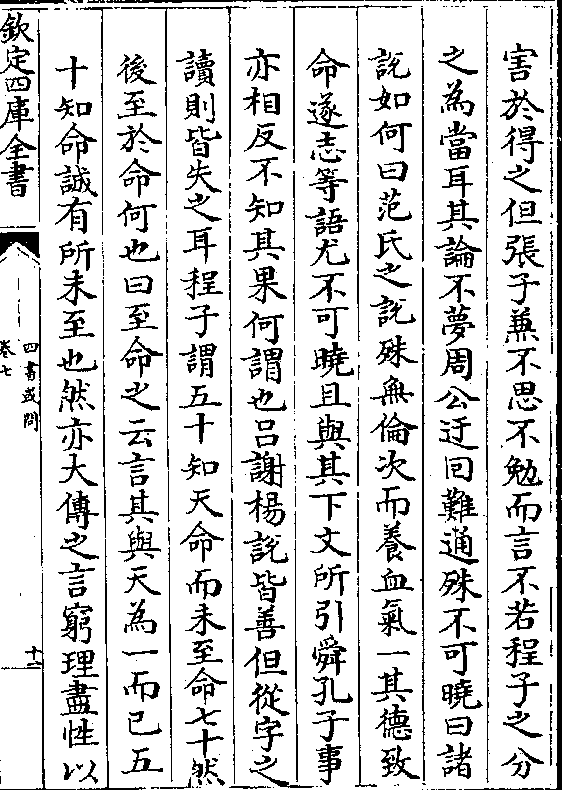 害於得之但張子兼不思不勉而言不若程子之分
之為當耳其論不夢周公迂回難通殊不可曉曰諸
說如何曰范氏之説殊無倫次而養血氣一其德致
命遂志等語尤不可曉且與其下文所引舜孔子事
亦相反不知其果何謂也吕謝楊説皆善但從字之
讀則皆失之耳程子謂五十知天命而未至命七十然
後至於命何也曰至命之云言其與天為一而已五
十知命誠有所未至也然亦大傳之言窮理盡性以
欽定四庫全書
四書或問
卷七
十一